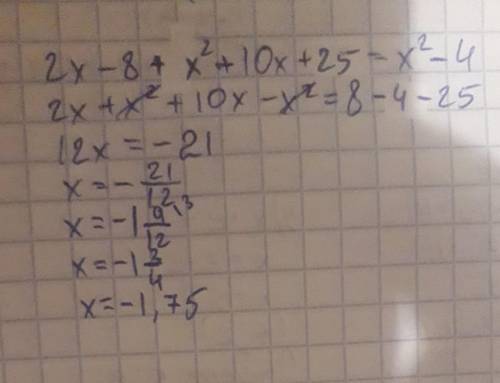 2x - 8 + x² + 10x + 25 = x² - 4
2x + x² + 10x - x² = 8 - 4 - 25
12x = -21
x = - 21/12
x = -1 9/12 \3
x = -1 3/4
x = -1,75